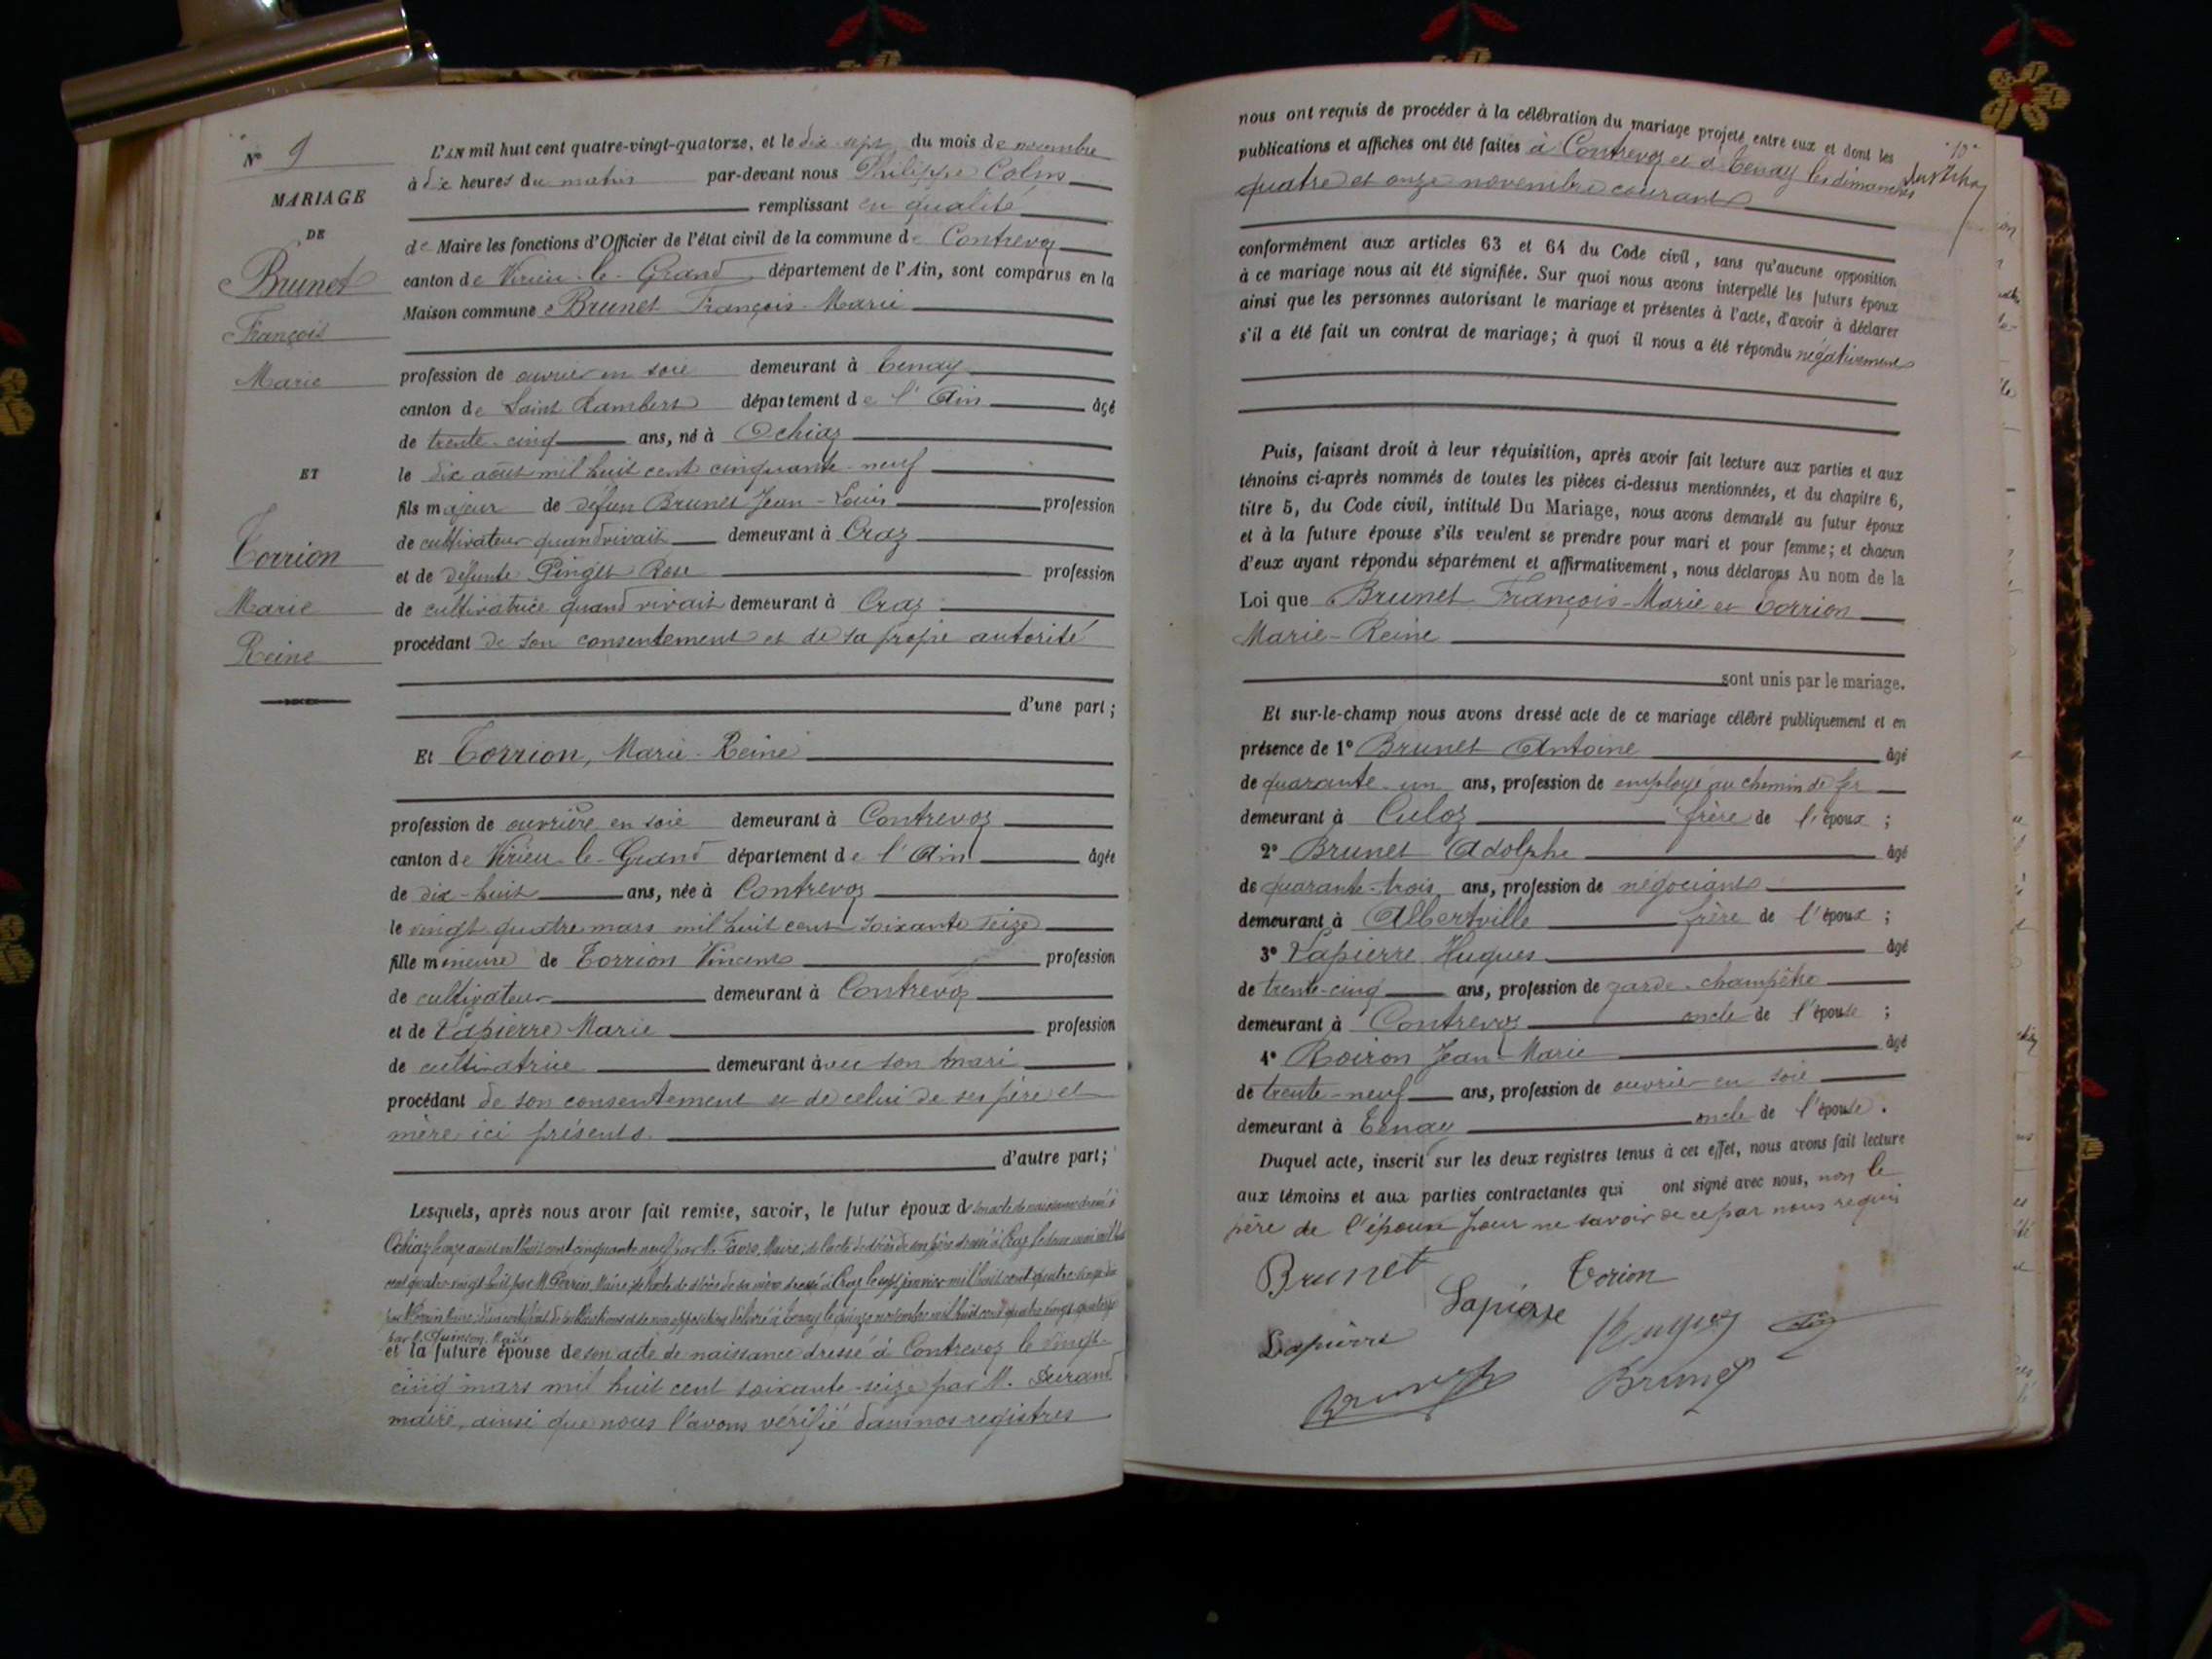 N° 9
MARIAGE
DE
Brunet
François
Marie
ET
Torrion
Marie
Reine
L'AN mil huit cent quatre-vingt-quatorze, et le dix-sept du mois de novembre
à dix heures du matin par-devant nous Philippe Colin
remplissant en qualité
de Maire les fonctions d'Officier de l'état civil de la commune de Contrevoz
canton de Virieu-le-Grand, département de l'Ain, sont comparus en la
Maison commune Brunet François-Marie
profession de ouvrier en soie demeurant à Tenay
canton de Saint Rambert département de l'Ain âgé
de trente-cinq ans, né à Ochiaz
le dix août mil huit cent cinquante-neuf
fils majeur de défunt Brunet Jean-Louis profession
de cultivateur quand vivait demeurant à Craz
et de défunte Pinget Rose profession
de cultivatrice quand vivait demeurant à Craz
procédant de son consentement et de sa propre autorité
d'une part;
Et Torrion, Marie-Reine
profession de ouvrière en soie demeurant à Contrevoz
canton de Virieu-le-Grand département de l'Ain âgée
de dix-huit ans, née à Contrevoz
le vingt quatre mars mil huit cent soixante seize
fille mineure de Torrion Vincent profession
de cultivateur demeurant à Contrevoz
et de Lapierre Marie profession
de cultivatrice demeurant avec son mari
procédant de son consentement et de celui de ses père et
mère ici présents.
d'autre part;
Lesquels, après nous avoir fait remise, savoir, le futur époux de son acte de naissance dressé à
Ochiaz le onze août mil huit cent cinquante neuf par M. Favre, Maire; de l'acte de décès de son père dressé à Craz le mai mil huit
cent quatre-vingt huit par M. Perrin, Maire, de l'acte de décès de sa mère dressé à Craz le sept janvier mil huit cent quatre-vingt-dix
par Maire; d'un certificat de publications et de non opposition délivré à Tenay le quinze novembre mil huit cent quatre vingt quatorze
par M. Quinson, Maire
et la future épouse de son acte de naissance dressé à Contrevoz le vingt-
cinq mars mil huit cent soixante-seize par M. Durand
maire, ainsi que nous l'avons vérifié dans nos registres
nous ont requis de procéder à la célébration du mariage projeté entre eux et dont les
publications et affiches ont été faites à Contrevoz et à Tenay les dimanches
quatre et onze novembre courant
conformément aux articles 63 et 64 du Code civil, sans qu'aucune opposition
à ce mariage nous ait été signifiée. Sur quoi nous avons interpellé les futurs époux
ainsi que les personnes autorisant le mariage et présentes à l'acte, d'avoir à déclarer
s'il a été fait un contrat de mariage; à quoi il nous a été répondu négativement
Puis, faisant droit à leur réquisition, après avoir fait lecture aux parties et aux
témoins ci-après nommés de toutes les pièces ci-dessus mentionnées, et du chapitre 6,
titre 5, du Code civil, intitulé Du Mariage, nous avons demandé au futur époux
et à la future épouse s'ils veulent se prendre pour mari et pour femme; et chacun
d'eux ayant répondu séparément et affirmativement, nous déclarons Au nom de la
Loi que Brunet François-Marie et Torrion
Marie-Reine
sont unis par le mariage.
Et sur-le-champ nous avons dressé acte de ce mariage célébré publiquement et en
présence de 1° Brunet Antoine âgé
de quarante-un ans, profession de employé au chemin de fer
demeurant à Culoz frère de l'époux;
2° Brunet Adolphe âgé
de quarante-trois ans, profession de négociant
demeurant à Albertville frère de l'époux;
3° Lapierre Hugues âgé
de trente-cinq ans, profession de garde-champêtre
demeurant à Contrevoz oncle de l'épouse;
4° Roiron Jean-Marie âgé
de trente-neuf ans, profession de ouvrier en soie
demeurant à Tenay oncle de l'épouse.
Duquel acte, inscrit sur les deux registres tenus à cet effet, nous avons fait lecture
aux témoins et aux parties contractantes qui ont signé avec nous, non le
père de l'épouse pour ne savoir de ce par nous requis
Brunet
Torion
Lapierre
Lapierre
Brunet
Brunet